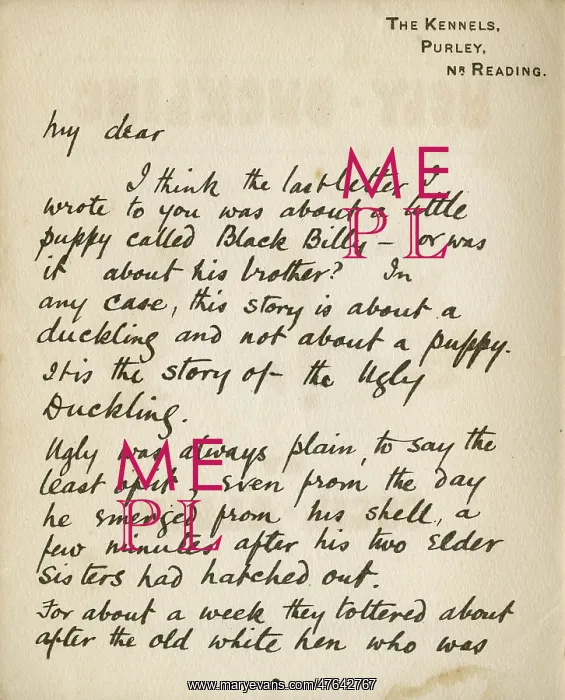 THE KENNELS,
PURLEY,
NR READING.
My dear
I think the last letter I
wrote to you was about a little
puppy called Black Billy – or was
it about his brother? In
any case, this story is about a
duckling and not about a puppy.
It is the story of the Ugly
Duckling.
Ugly was always plain, to say the
least of it, even from the day
he emerged from his shell, a
few minutes after his two elder
sisters had hatched out.
For about a week they tottered about
after the old white hen who was
ME
PL
ME
PL
www.maryevans.com/47642767